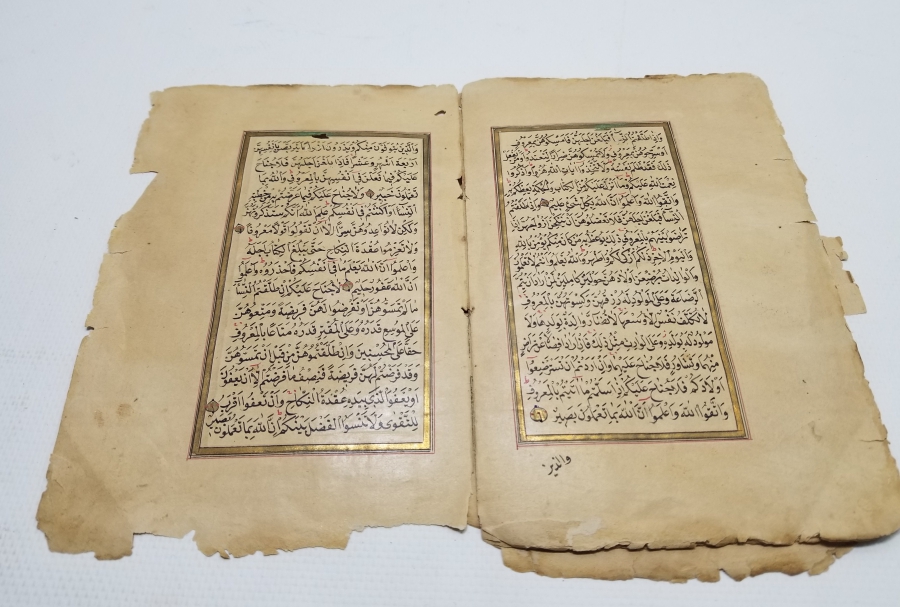 وَاِذَا طَلَّقْتُمُ النِّسَاءَ فَبَلَغْنَ اَجَلَهُنَّ فَاَمْسِكُوهُنَّ بِمَعْرُوفٍ
اَوْ سَرِّحُوهُنَّ بِمَعْرُوفٍ وَلَا تُمْسِكُوهُنَّ ضِرَارًا لِتَعْتَدُوا وَمَنْ يَفْعَلْ
ذٰلِكَ فَقَدْ ظَلَمَ نَفْسَهُ وَلَا تَتَّخِذُوا اٰيَاتِ اللّٰهِ هُزُوًا وَاذْكُرُوا
نِعْمَتَ اللّٰهِ عَلَيْكُمْ وَمَا اَنْزَلَ عَلَيْكُمْ مِنَ الْكِتَابِ وَالْحِكْمَةِ يَعِظُكُمْ بِهِ
وَاتَّقُوا اللّٰهَ وَاعْلَمُوا اَنَّ اللّٰهَ بِكُلِّ شَيْءٍ عَلِيمٌ وَاِذَا طَلَّقْتُمُ
النِّسَاءَ فَبَلَغْنَ اَجَلَهُنَّ فَلَا تَعْضُلُوهُنَّ اَنْ يَنْكِحْنَ اَزْوَاجَهُنَّ اِذَا
تَرَاضَوْا بَيْنَهُمْ بِالْمَعْرُوفِ ذٰلِكَ يُوعَظُ بِهِ مَنْ كَانَ مِنْكُمْ يُؤْمِنُ بِاللّٰهِ
وَالْيَوْمِ الْاٰخِرِ ذٰلِكُمْ اَزْكٰى لَكُمْ وَاَطْهَرُ وَاللّٰهُ يَعْلَمُ وَاَنْتُمْ لَا تَعْلَمُونَ
وَالْوَالِدَاتُ يُرْضِعْنَ اَوْلَادَهُنَّ حَوْلَيْنِ كَامِلَيْنِ لِمَنْ اَرَادَ اَنْ يُتِمَّ
الرَّضَاعَةَ وَعَلَى الْمَوْلُودِ لَهُ رِزْقُهُنَّ وَكِسْوَتُهُنَّ بِالْمَعْرُوفِ
لَا تُكَلَّفُ نَفْسٌ اِلَّا وُسْعَهَا لَا تُضَارَّ وَالِدَةٌ بِوَلَدِهَا وَلَا
مَوْلُودٌ لَهُ بِوَلَدِهِ وَعَلَى الْوَارِثِ مِثْلُ ذٰلِكَ فَاِنْ اَرَادَا فِصَالًا عَنْ تَرَاضٍ
مِنْهُمَا وَتَشَاوُرٍ فَلَا جُنَاحَ عَلَيْهِمَا وَاِنْ اَرَدْتُمْ اَنْ تَسْتَرْضِعُوا
اَوْلَادَكُمْ فَلَا جُنَاحَ عَلَيْكُمْ اِذَا سَلَّمْتُمْ مَا اٰتَيْتُمْ بِالْمَعْرُوفِ
وَاتَّقُوا اللّٰهَ وَاعْلَمُوا اَنَّ اللّٰهَ بِمَا تَعْمَلُونَ بَصِيرٌ
والذين
وَالَّذِينَ يُتَوَفَّوْنَ مِنْكُمْ وَيَذَرُونَ اَزْوَاجًا يَتَرَبَّصْنَ بِاَنْفُسِهِنَّ
اَرْبَعَةَ اَشْهُرٍ وَعَشْرًا فَاِذَا بَلَغْنَ اَجَلَهُنَّ فَلَا جُنَاحَ
عَلَيْكُمْ فِيمَا فَعَلْنَ فِي اَنْفُسِهِنَّ بِالْمَعْرُوفِ وَاللّٰهُ بِمَا
تَعْمَلُونَ خَبِيرٌ وَلَا جُنَاحَ عَلَيْكُمْ فِيمَا عَرَّضْتُمْ بِهِ مِنْ خِطْبَةِ
النِّسَاءِ اَوْ اَكْنَنْتُمْ فِي اَنْفُسِكُمْ عَلِمَ اللّٰهُ اَنَّكُمْ سَتَذْكُرُونَهُنَّ
وَلٰكِنْ لَا تُوَاعِدُوهُنَّ سِرًّا اِلَّا اَنْ تَقُولُوا قَوْلًا مَعْرُوفًا
وَلَا تَعْزِمُوا عُقْدَةَ النِّكَاحِ حَتّٰى يَبْلُغَ الْكِتَابُ اَجَلَهُ
وَاعْلَمُوا اَنَّ اللّٰهَ يَعْلَمُ مَا فِي اَنْفُسِكُمْ فَاحْذَرُوهُ وَاعْلَمُوا
اَنَّ اللّٰهَ غَفُورٌ حَلِيمٌ لَا جُنَاحَ عَلَيْكُمْ اِنْ طَلَّقْتُمُ النِّسَاءَ
مَا لَمْ تَمَسُّوهُنَّ اَوْ تَفْرِضُوا لَهُنَّ فَرِيضَةً وَمَتِّعُوهُنَّ
عَلَى الْمُوسِعِ قَدَرُهُ وَعَلَى الْمُقْتِرِ قَدَرُهُ مَتَاعًا بِالْمَعْرُوفِ
حَقًّا عَلَى الْمُحْسِنِينَ وَاِنْ طَلَّقْتُمُوهُنَّ مِنْ قَبْلِ اَنْ تَمَسُّوهُنَّ
وَقَدْ فَرَضْتُمْ لَهُنَّ فَرِيضَةً فَنِصْفُ مَا فَرَضْتُمْ اِلَّا اَنْ يَعْفُونَ
اَوْ يَعْفُوَا الَّذِي بِيَدِهِ عُقْدَةُ النِّكَاحِ وَاَنْ تَعْفُوا اَقْرَبُ
لِلتَّقْوٰى وَلَا تَنْسَوُا الْفَضْلَ بَيْنَكُمْ اِنَّ اللّٰهَ بِمَا تَعْمَلُونَ بَصِيرٌ